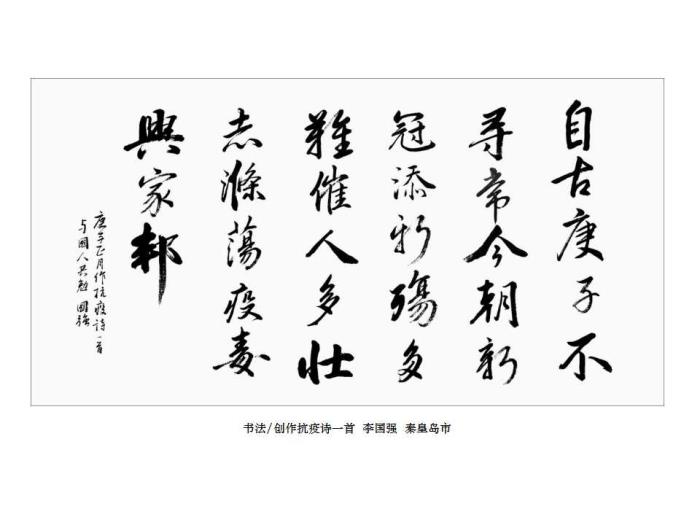 自古庚子不
尋常今朝新
冠添新殤多
難催人多壮
志滌蕩疫毒
興家邦
庚子正月作抗疫诗一首
与國人共勉 國强
书法/创作抗疫诗一首 李国强 秦皇岛市